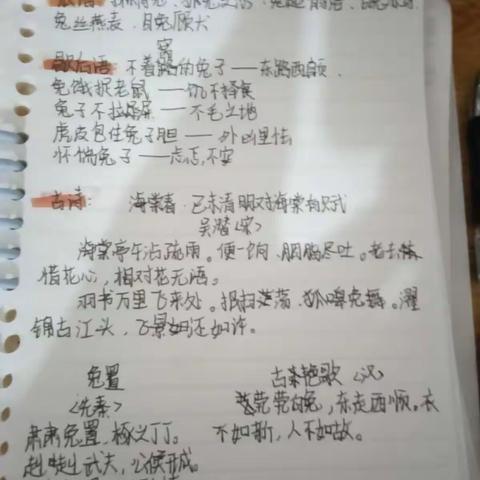 兔丝燕麦、目兔顾犬
歇后语 不着窝的兔子——东跑西颠、
兔饿捉老鼠——饥不择食
兔子不拉屎——不毛之地
虎皮包住兔子胆——外凶里怯
怀惴兔子——忐忑不安
古诗: 海棠春·己未清明对海棠有赋
吴潜<宋>
海棠亭午沾疏雨。便一饷、胭脂尽吐。老去
惜花心,相对花无语。
羽书万里飞来处。报扫荡、狐嗥兔舞。濯
锦古江头,飞景还如许。
兔罝 古艳歌<汉>
<先秦> 茕茕白兔,东走西顾。衣
肃肃兔罝,椓之丁丁。 不如新,人不如故。
赳赳武夫,公侯